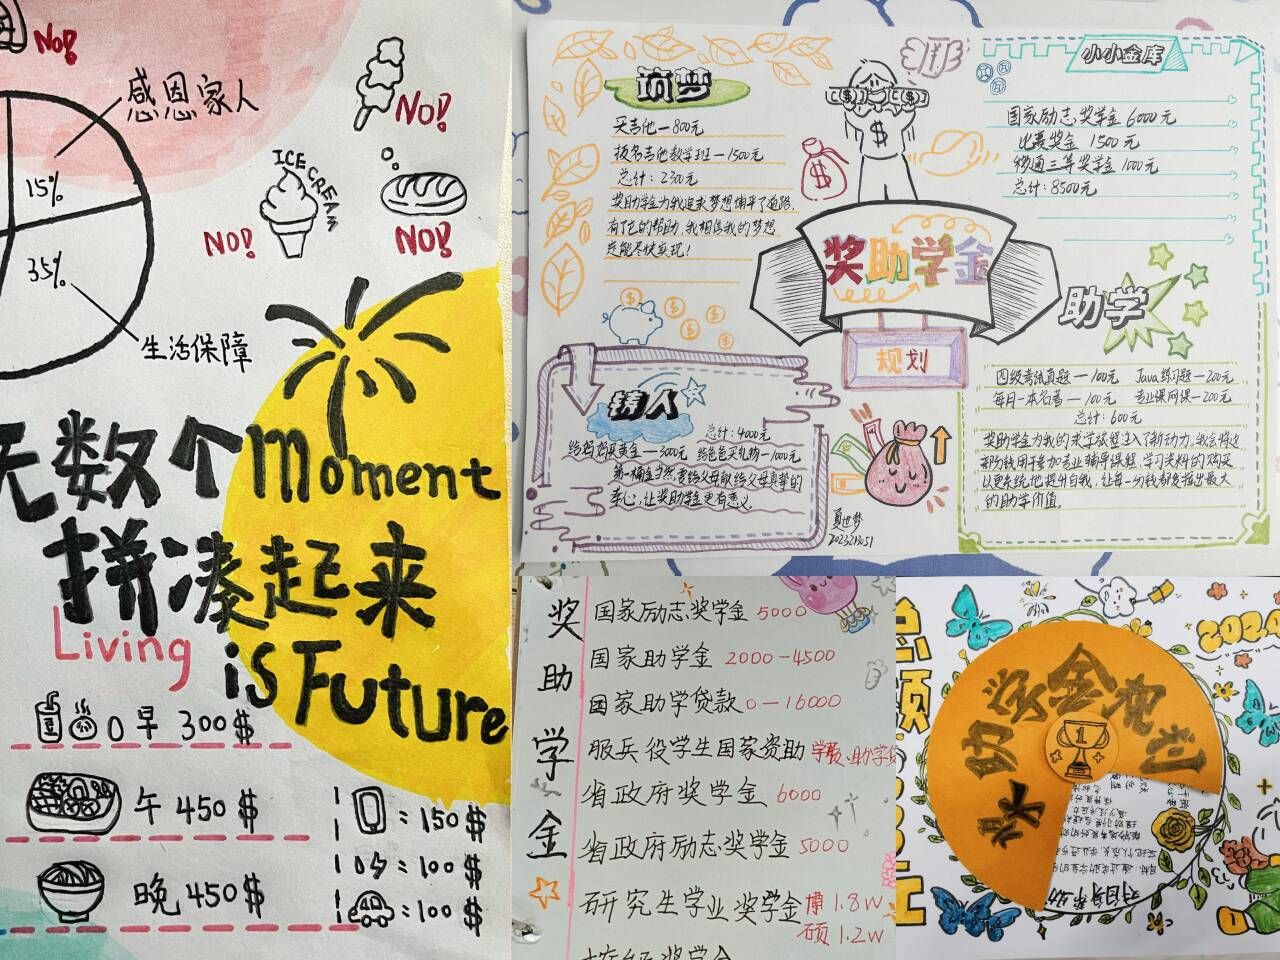 No!
感恩家人
No!
15%
ICE CREAM
No!
No!
35%
生活保障
无数个moment
拼凑起来
Living
is Future
早 300$
午 450$
晚 450$
:150$
:100$
:100$
筑梦
买吉他—800元
报名吉他教学班—1500元
总计:2300元
奖助学金为我追求梦想铺平了道路,
有了它的帮助,我相信我的梦想
定能尽快实现!
小小金库
国家励志奖学金 6000元
比赛奖金 1500元
移通三等奖学金 1000元
总计:8500元
奖助学金
规划
铸人
总计:4000元
给妈妈买黄金—3000元 给爸爸买礼物—1000元
第一桶金当然要给父母献给父母真挚的
孝心,让奖助学金更有意义。
助学
四级考试真题—100元 Java练习题—200元
每月一本名著—100元 专业课网课—200元
总计:600元
奖助学金为我的求学旅程注入了新动力。我会将这
部分钱用于参加专业辅导课程,学习资料的购买
以更系统地提升自我,让每一分钱都发挥出最大
的助学价值。
奖助学金
国家励志奖学金 5000
国家助学金 2000-4500
国家助学贷款 0-16000
服兵役学生国家资助
省政府奖学金 6000
省政府励志奖学金 5000
研究生学业奖学金 博 1.8w
硕 1.2w
奖助学金规划
1
2024